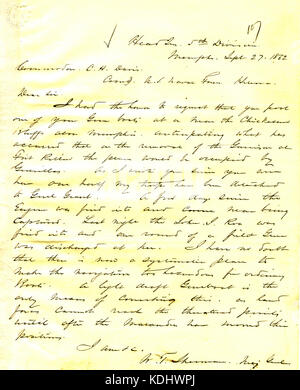 Head Qrs. 5th Division
Memphis, Sept 27. 1862
Commodore C. H. Davis
Comg. U.S. Naval Forces
Dear Sir
I had the honor to request that you post
one of your Gun boats at or near the Chickasaw
Bluffs above Memphis. Anticipating what has
occurred that on the removal of the Garrison at
Fort Pillow the place would be occupied by
Guerrillas. As I wrote you since you were
here one half my troops have been detached
to Genl Grant. A few days since the
Eugene was fired into and came near being
captured. Last night the John J. Roe was
fired into and one round of a field Gun
was discharged at her. I have no doubt
that there is now a systematic plan to
make the navigation too hazardous for ordinary
Boats. A light draft Gunboat is the
only means of correcting this, as land
forces cannot reach the threatened points,
until after the Marauders have moved their
positions.
I am &c.
W. T. Sherman. Maj Genl
alamy
Image ID: KDHWPJ
www.alamy.com